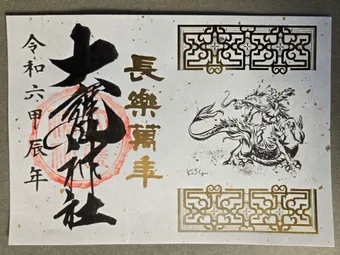 長樂萬年
大 神社
令和六甲辰年